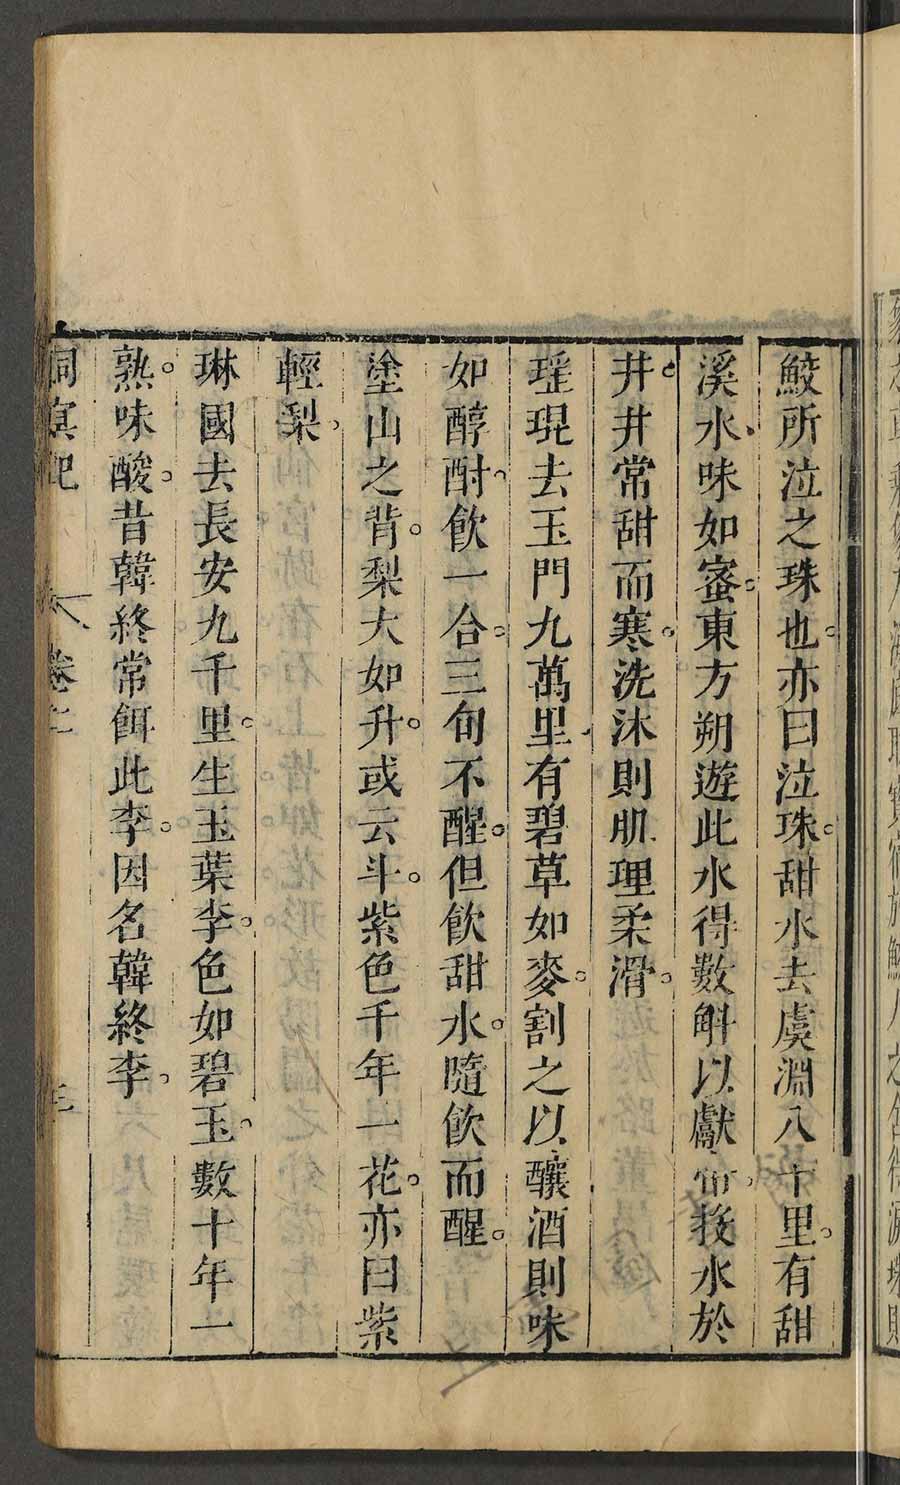 鮫所泣之珠也。亦曰泣珠。甜水去虞淵八十里。有甜
溪水、味如蜜。東方朔遊此水得數斛以獻帝。投水於
井。井常甜而寒。洗沐則肌理柔滑。
瑤琨去玉門九萬里、有碧草如麥。割之以釀酒則味
如醇酎。飲一合。三旬不醒。但飲甜水。隨飲而醒。
塗山之背。梨大如升。或云斗。紫色千年一花。亦曰紫
輕梨、
琳國去長安九千里。生玉葉李。色如碧玉。數十年一
熟。味酸。昔韓終常餌此李。因名韓終李。
洞冥記 卷二